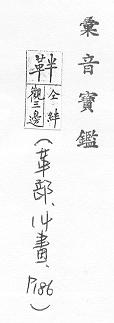 彙音寶鑑
靽
仝絆
觀三邊
(革部、14畫、P186)